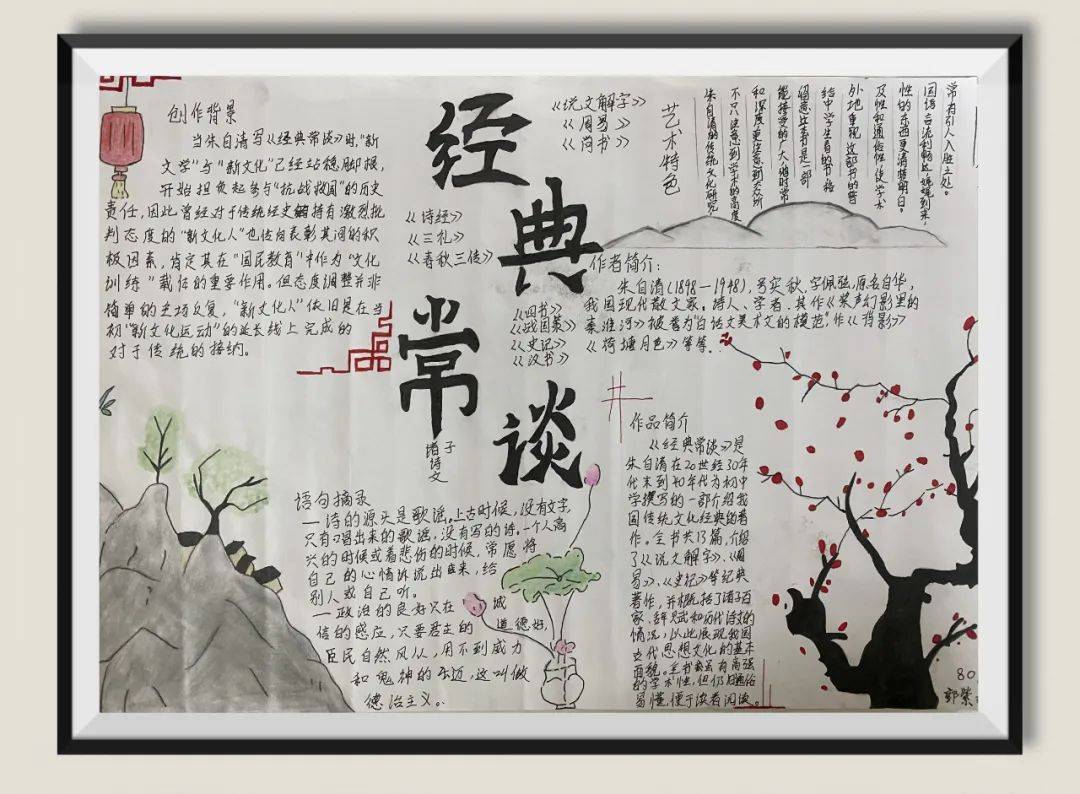 创作背景
当朱自清写《经典常谈》时,"新
文学"与"新文化"已经站稳脚跟,
开始担负起参与"抗战救国"的历史
责任,因此曾经对于传统经史持有激烈批
判态度的"新文化人"也转向表彰其间的积
极因素,肯定其在"国民教育"中作为"文化
训练"载体的重要作用。但态度调整并非
简单的立场反复,"新文化人"依旧是在当
初"新文化运动"的延长线上完成的
对于传统的接纳。
经典常谈
《说文解字》
《周易》
《尚书》
《诗经》
《三礼》
《春秋三传》
《四书》
《战国策》
《史记》
《汉书》
诸子
诗文
艺术特色
朱自清的传统文化研究,
不只注意到学术的高度
和深度,更注意到大众所
能接受的广大,他时常
留意
这书是一部
给中学生看的书,格
外地重视这部书的普
及性和通俗性,使学术
性的东西更清楚明白。
因语言流利畅达,娓娓到来,
常有引人入胜之处。
作者简介:
朱自清(1898-1948),号实秋,字佩弦,原名自华,
我国现代散文家,诗人、学者.其作《桨声灯影里的
秦淮河》被誉为"白话文美术文的模范",作《背影》
《荷塘月色》等等.
作品简介
《经典常谈》是
朱自清在20世纪30年
代末到40年代为初中
学撰写的一部介绍我
国传统文化经典的著
作。全书共13篇,介绍
了《说文解字》、《周
易》、《史记》等经典
著作,并概括了诸子百
家、辞赋和历代诗文的
情况,以此展现我国
古代思想文化的基本
面貌。全书虽有高强
的学术性,但仍旧通俗
易懂,便于读者阅读。
语句摘录
一诗的源头是歌谣。上古时候,没有文字,
只有唱出来的歌谣,没有写的诗。一个人高
兴的时候或着悲伤的时候,常愿将
自己的心情诉说出来,给
别人或自己听。
一政治的良好只在诚
信的感应,只要君主的道德好,
臣民自然风从,用不到威力
和鬼神的压迫,这叫做
德治主义。
80
郭紫